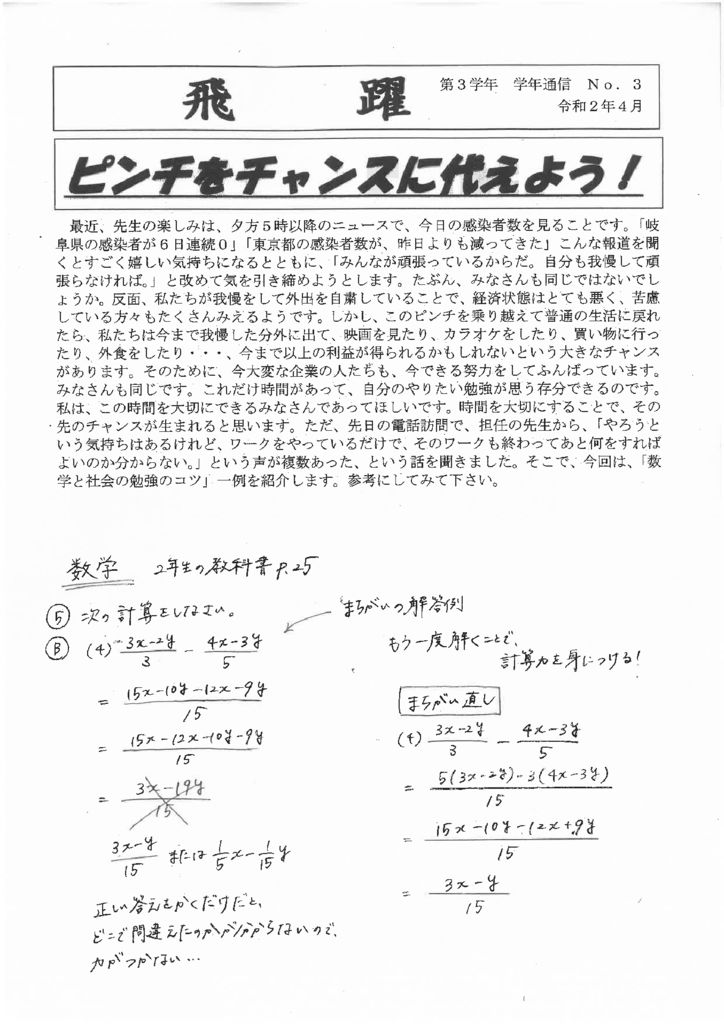 飛躍
第3学年 学年通信 No.3
令和2年4月
ピンチをチャンスに代えよう!
最近、先生の楽しみは、夕方5時以降のニュースで、今日の感染者数を見ることです。「岐
阜県の感染者が6日連続0」「東京都の感染者数が、昨日よりも減ってきた」こんな報道を聞
くとすごく嬉しい気持ちになるとともに、「みんなが頑張っているからだ。自分も我慢して頑
張らなければ。」と改めて気を引き締めようとします。たぶん、みなさんも同じではないでし
ょうか。反面、私たちが我慢をして外出を自粛していることで、経済状態はとても悪く、苦慮
している方々もたくさんみえるようです。しかし、このピンチを乗り越えて普通の生活に戻れ
たら、私たちは今まで我慢した分外に出て、映画を見たり、カラオケをしたり、買い物に行っ
たり、外食をしたり・・・、今まで以上の利益が得られるかもしれないという大きなチャンス
があります。そのために、今大変な企業の人たちも、今できる努力をしてふんばっています。
みなさんも同じです。これだけ時間があって、自分のやりたい勉強が思う存分できるのです。
私は、この時間を大切にできるみんなであってほしいです。時間を大切にすることで、その
先のチャンスが生まれると思います。ただ、先日の電話訪問で、担任の先生から、「やろうと
いう気持ちはあるけれど、ワークをやっているだけで、そのワークも終わってあと何をすれば
よいのか分からない。」という声が複数あった、という話を聞きました。そこで、今回は、「数
学と社会の勉強のコツ」一例を紹介します。参考にしてみて下さい。
数学 2年生の教科書P.25
⑤ 次の計算をしなさい。
まちがいの解答例
Ⓑ (4) (3x-2y)/3 - (4x-3y)/5
= (15x-10y-12x-9y)/15
= (15x-12x-10y-9y)/15
= (3x-19y)/15
(3x-y)/15 または 1/5x-1/15y
正しい答えをかくだけだと、
どこで間違えたのかが分からないので、
力がつかない…
もう一度解くことで、
計算力を身につける!
まちがい直し
(4) (3x-2y)/3 - (4x-3y)/5
= (5(3x-2y)-3(4x-3y))/15
= (15x-10y-12x+9y)/15
= (3x-y)/15